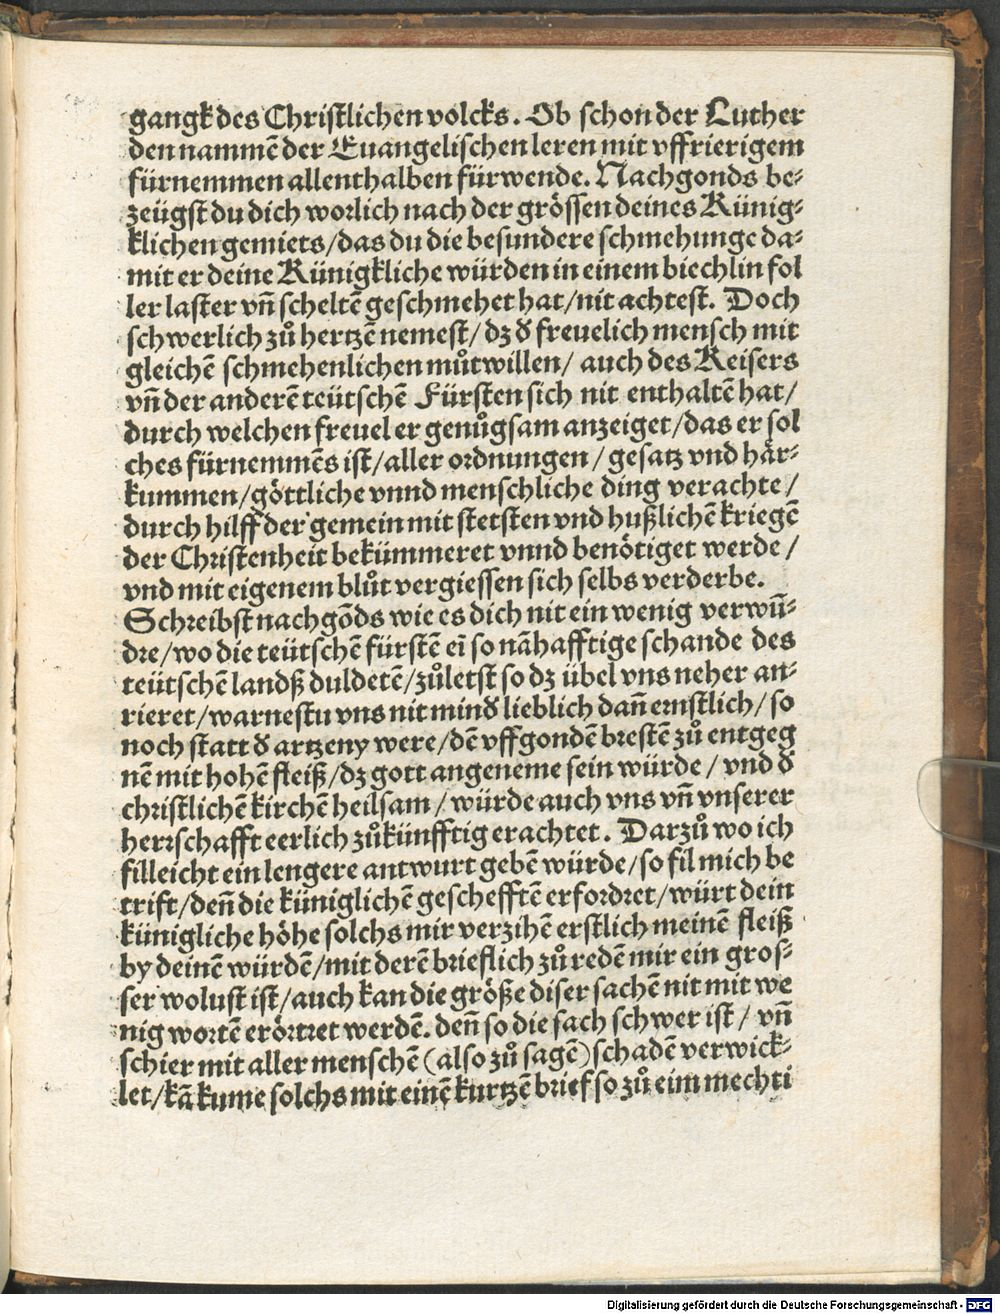 gangk des Christlichen volcks. Ob schon der Luther
den nammē der Euangelischen leren mit vffrierigem
fürnemmen allenthalben fürwende. Nachgonds be⸗
zeügst du dich worlich nach der grössen deines Künig⸗
klichen gemiets/das du die besundere schmehunge da⸗
mit er deine Künigkliche würden in einem biechlin fol
ler laster vñ scheltē geschmehet hat/nit achtest. Doch
schwerlich zů hertzē nemest/dz ð freuelich mensch mit
gleichē schmehenlichen můtwillen/ auch des Keisers
vñ der anderē teütschē Fürsten sich nit enthaltē hat/
durch welchen freuel er genůgsam anzeiget/das er sol
ches fürnemmēs ist/aller ordnungen/gesatz vnd här⸗
kummen/göttliche vnnd menschliche ding verachte/
durch hilff der gemein mit stetsten vnd hußlichē kriegē
der Christenheit bekümmeret vnnd benötiget werde/
vnd mit eigenem blůt vergiessen sich selbs verderbe.
Schreibst nachgōds wie es dich nit ein wenig verwū⸗
dre/wo die teütschē fürstē eī so nāhafftige schande des
teütschē landß duldetē/zůletst so dz übel vns neher an⸗
rieret/warnestu vns nit minð lieblich dañ ernstlich/so
noch statt ð artzeny were/dē vffgondē brestē zů entgeg
nē mit hohē fleiß/dz gott angeneme sein würde/vnd ð
christlichē kirchē heilsam/würde auch vns vñ vnserer
herrschafft eerlich zůkünfftig erachtet. Darzů wo ich
filleicht ein lengere antwurt gebē würde/so fil mich be
trift/deñ die küniglichē geschefftē erfordret/würt dein
künigliche höhe solchs mir verzihē erstlich meinē fleiß
by deinē würdē/mit derē brieflich zů redē mir ein gros⸗
ser wolust ist/auch kan die größe diser sachē nit mit we
nig wortē erörtret werdē. deñ so die sach schwer ist/ vñ
schier mit aller menschē (also zů sagē) schadē verwick⸗
let/kā kume solchs mit einē kurtzē brief so zů eim mechti
Digitalisierung gefördert durch die Deutsche Forschungsgemeinschaft - DFG